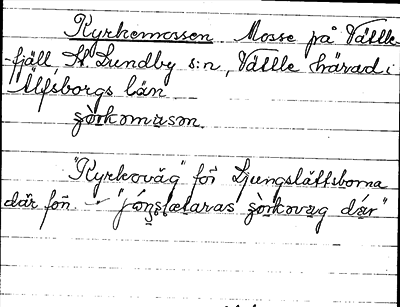 Kyrkemossen Mosse på Vättle-
-fjäll St. Lundby s:n, Vättle härad i
Älfsborgs län
şòrkomuson.
"Kyrkoväg" för Ljungslättsborna
där förr "jóṇşlætaras şòrkovæg dár"